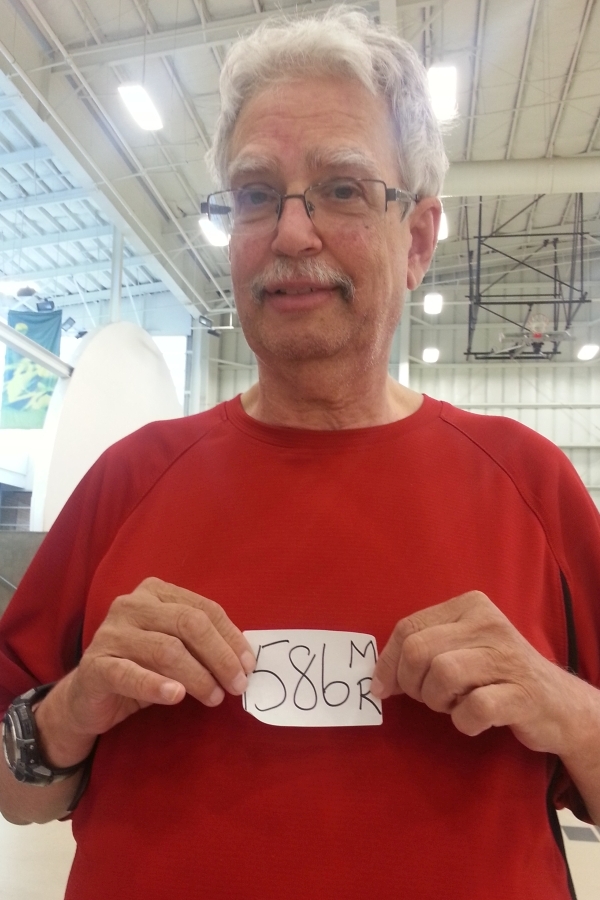 1586 M
R